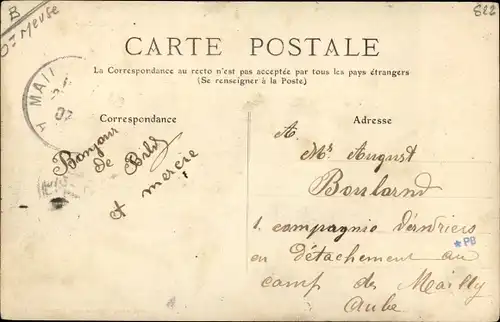 B
Dt Meuse
522
A MAILL
07
CARTE POSTALE
La Correspondance au recto n'est pas acceptée par tous les pays étrangers
(Se renseigner à la Poste.)
Correspondance
Bonjour
de
et mercie
Adresse
A
Mr August
Bouland
1. compagnie
ou Détachement au
camp de Mailly
Aube
*PB